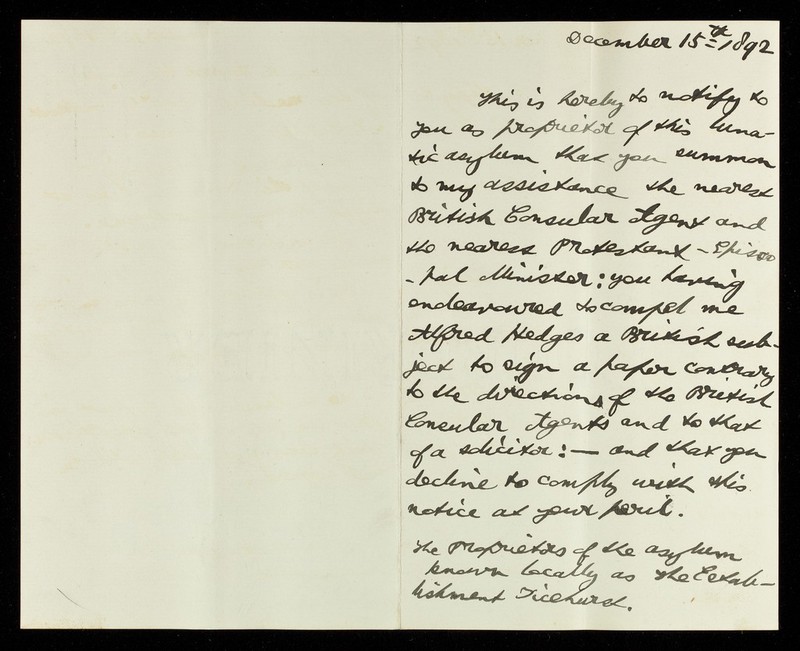 December 15th 1892
This is hereby to notify to
you as proprietor of this luna-
tic asylum that you summon
to my assistance the nearest
British Consular Agent and
the nearest Protestant - Episco
- pal Minister: you having
endeavoured to compel me
Alfred Hedges a British sub-
ject to sign a paper contrary
to the directions of the British
Consular Agents and to that
of a solicitor: — and that you
decline to comply with this
notice at your peril.
The Proprietors of the asylum
known locally as The Estab-
lishment Ticehurst.